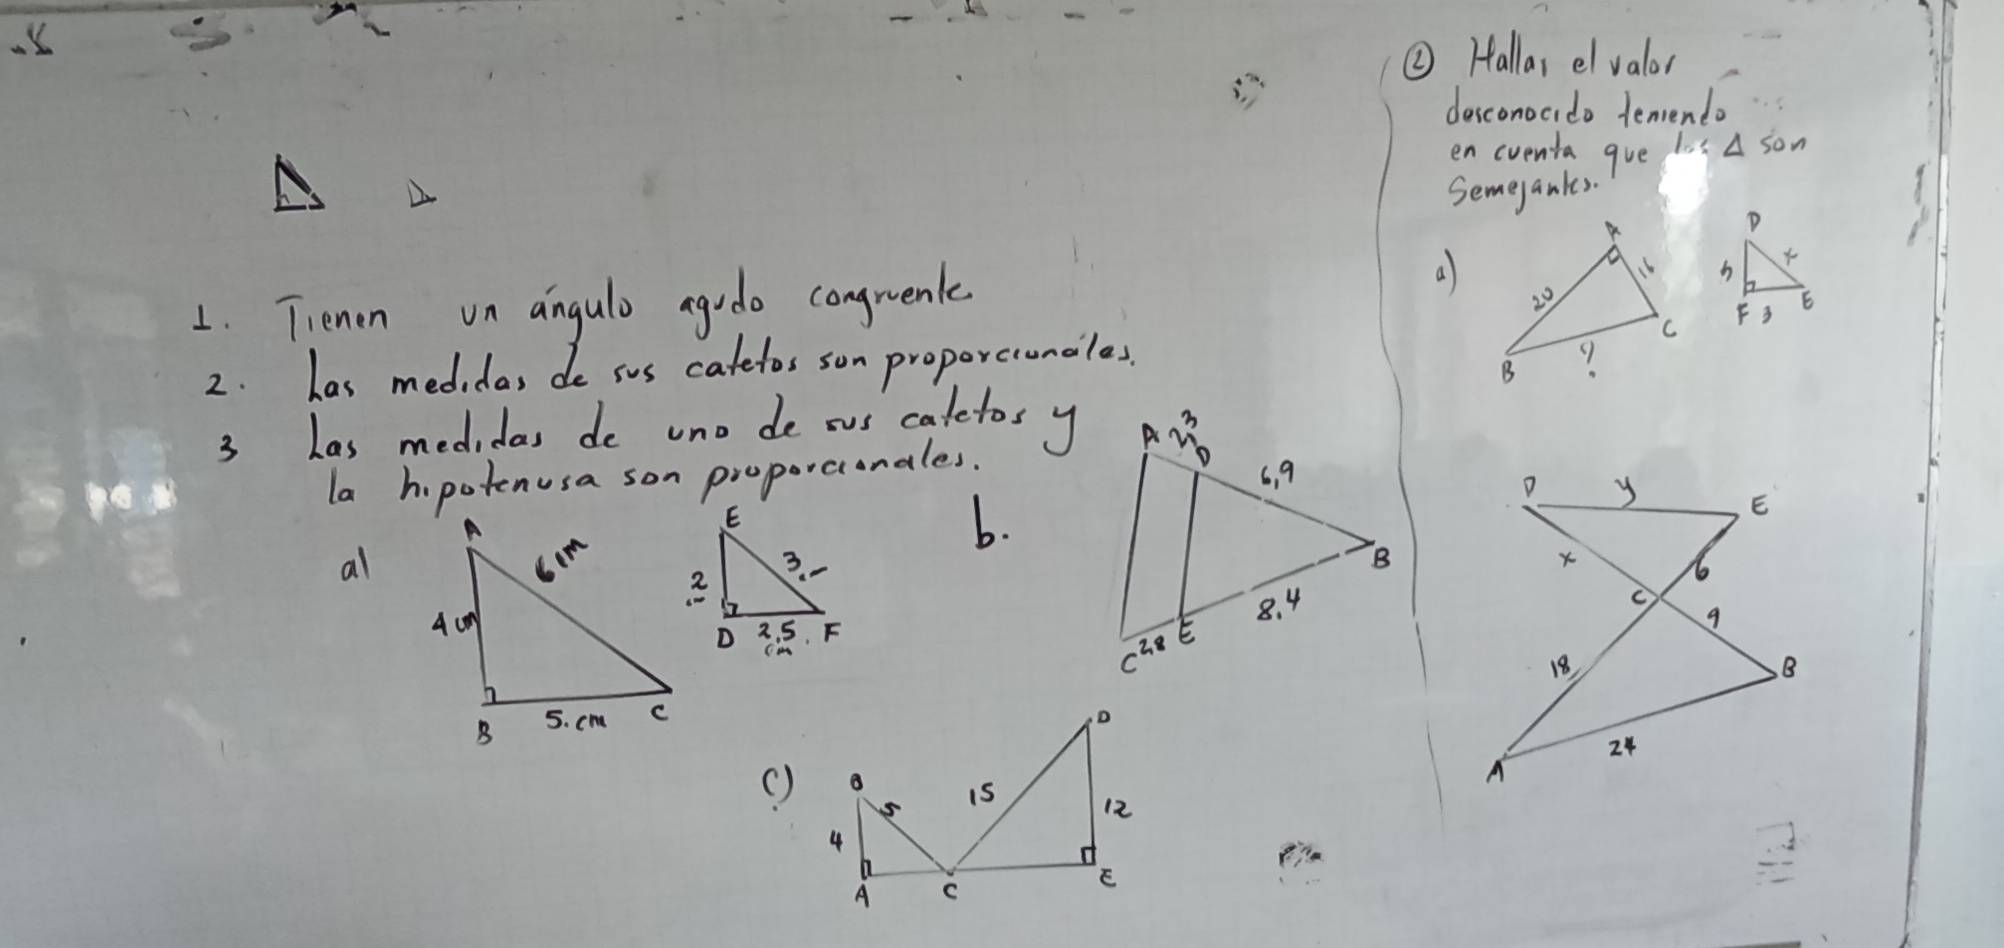 1. Tienen un ángulo agudo congruente
2. Las medidas de sus catetos son proporcionales.
3 Las medidas de uno de sus catetos y
la hipotenusa son proporcionales.
a)
A
6 cm
4 cm
B
5. cm
C
E
2
3
D
2,5
cm
F
b.
A
D
6,9
B
8,4
E
2,8
C
c)
B
5
4
A
C
15
D
12
E
② Hallar el valor
desconocido teniendo
en cuenta que los Δ son
Semejantes.
a)
A
20
16
B
?
C
D
x
F
3
E
D
y
E
x
6
C
9
18
B
A
24